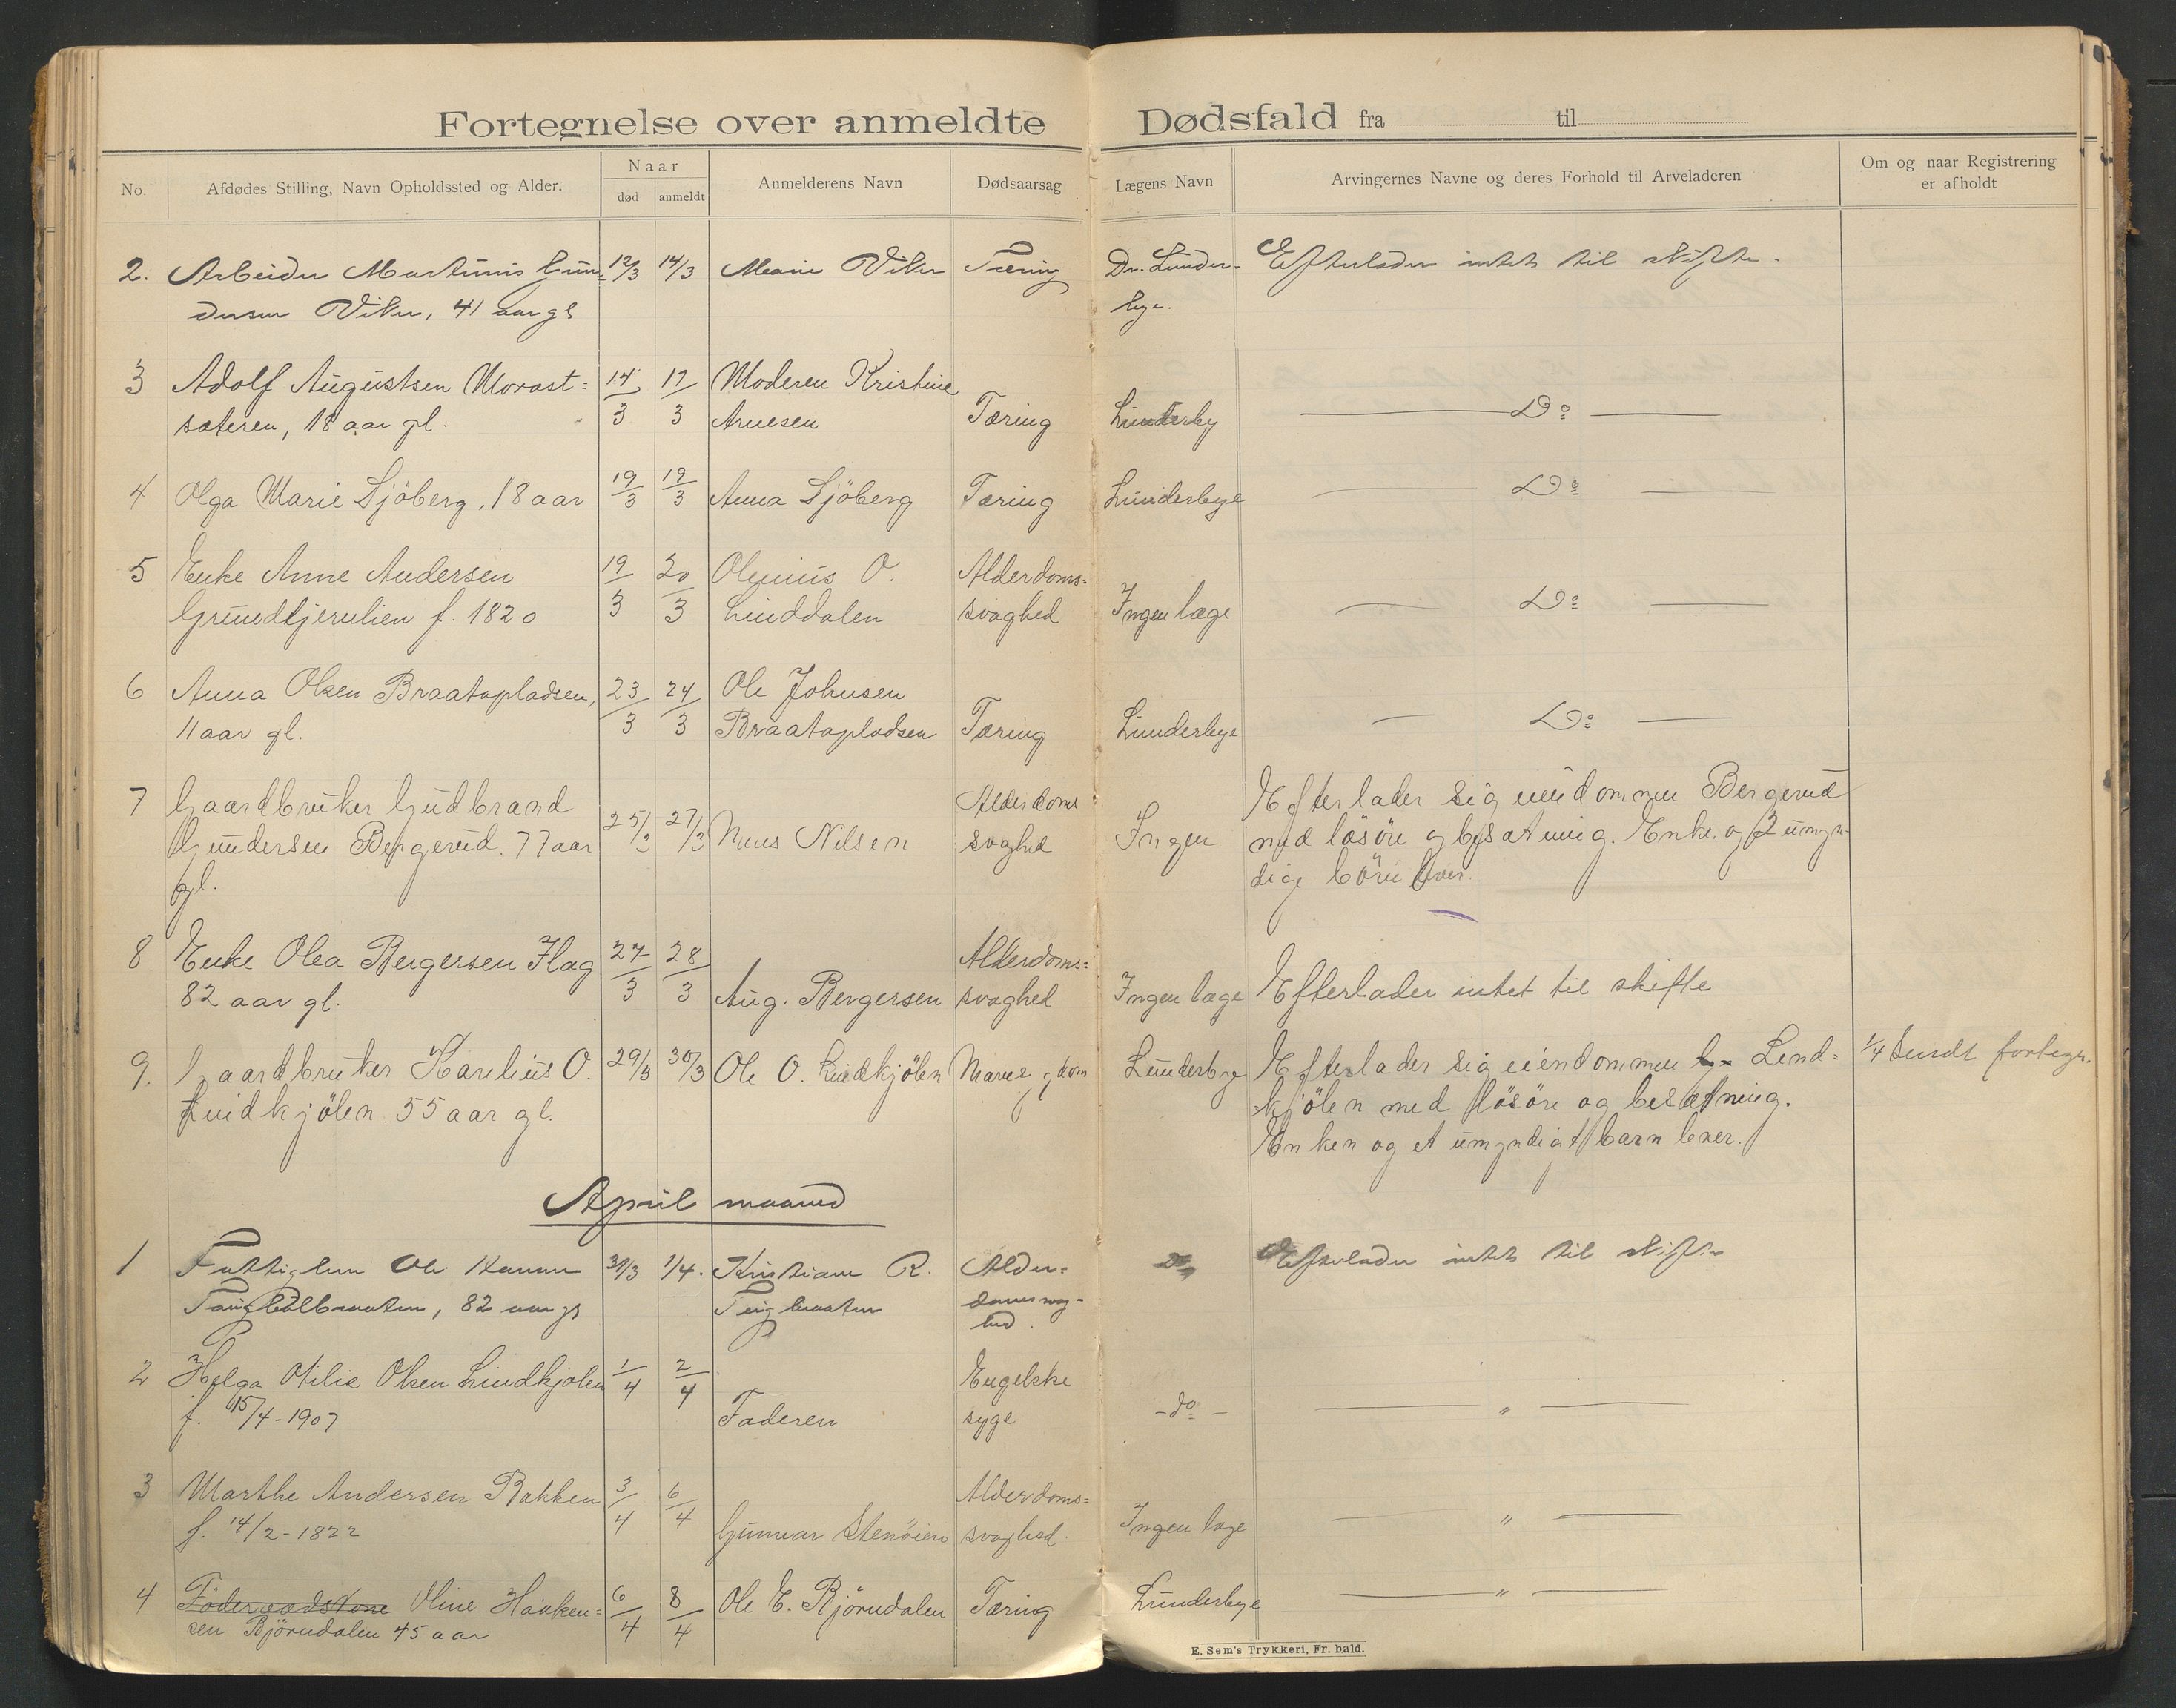 Fortegnelse over anmeldte Dødsfald fra til
No.
Afdødes Stilling, Navn Opholdssted og Alder.
Naar
død
anmeldt
Anmelderens Navn
Dødsaarsag
Lægens Navn
Arvingernes Navne og deres Forhold til Arveladeren
Om og naar Registrering
er afholdt
2. Arbeider Martinius Gun- 12/3 14/3 Marie Viker Tæring Dr. Lunder- Efterlader intet til skifte.
dersen Viker, 41 aar gl bye.
3 Adolf Augustsen Morast= 14/3 17/3 Moderen Kristine
sæteren, 18 aar gl. Arnesen Tæring Lunderby Do
4 Olga Marie Sjöberg, 18 aar 19/3 19/3 Anna Sjöberg Tæring Lunderbye Do
5 Enke Anne Andersen 19/3 20/3 Olenius O. Alderdoms=
f. 1820 Linddalen svaghed Ingen læge Do
6 Anna Olsen Braatapladsen, 23/3 24/3 Ole Johnsen
11 aar gl. Braatapladsen Tæring Lunderbye Do
7 Gaardbruker Gudbrand 25/3 27/3 Alderdoms Efterlader sig eiendommen Bergerud
Gundersen Bergerud. 77 aar Nilsen svaghed Ingen med lösöre og besætning. Enke og 2 umyn-
gl. dige börn lever.
8 Enke Olea Bergersen Flag 27/3 28/3 Alderdoms=
82 aar gl. Aug. Bergersen svaghed Ingen læge Efterlader intet til skifte
9. Gaardbruker Karelius O. 29/3 30/3 Ole O. Lindkjölen Lunderbye Efterlader sig eiendommen Lind= 1/4 Sendt fortegn.
Lindkjölen 55 aar gl. kjölen med lösöre og besætning.
Enken og et umyndigt barn lever.
April maaned
1 Fattiglem Ole Hansen 31/3 1/4. Kristian R. Alder= Do Efterlader intet til skifte
82 aar gl Teigbraaten domssvag-
hed.
2 Helga Otilie Olsen Lindkjölen 1/4 2/4 Engelske
f. 15/4-1907 Faderen syge - do - "
3 Marthe Andersen Bakken 3/4 6/4 Alderdoms=
f. 14/2-1822 Gunnar Stenöien svaghed. Ingen læge "
4 Föderaadskone Oline Haaken= 6/4 8/4 Ole E. Björndalen Tæring Lunderbye "
sen Björndalen 45 aar
E. Sem's Trykkeri, Fr. hald.